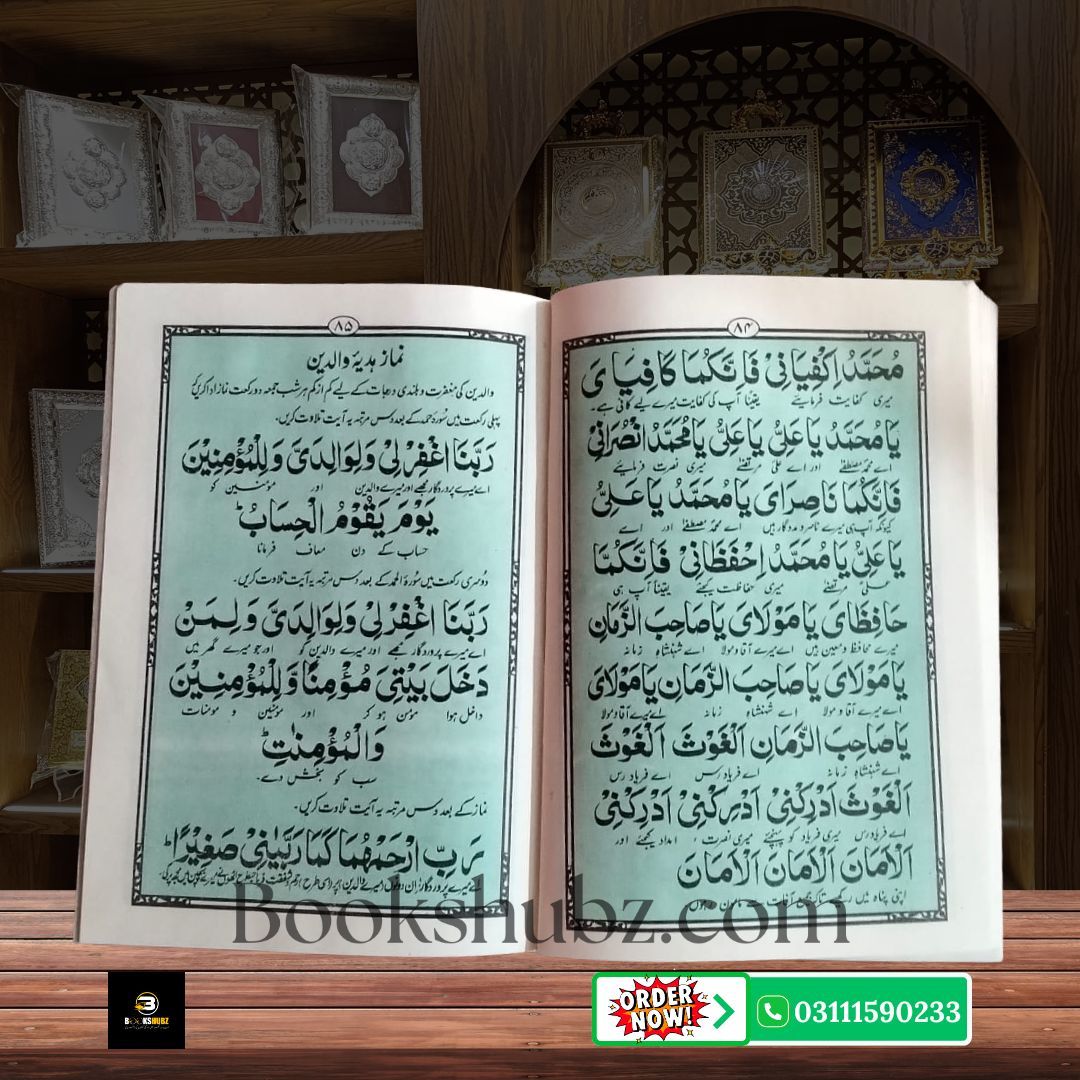 ۸۴
مُحَمَّدُ اِكْفِيَانِيْ فَاِنَّكُمَا كَافِيَايَ
میری کفایت فرمایئے یقینا آپ کی کفایت میرے لیے کافی ہے۔
يَا مُحَمَّدُ يَا عَلِيُّ يَا عَلِيُّ يَا مُحَمَّدُ انْصُرَانِيْ
اے محمد مصطفےٰ اور اے علی مرتضےٰ میری نصرت فرمایئے
فَاِنَّكُمَا نَاصِرَايَ يَا مُحَمَّدُ يَا عَلِيُّ
کیونکہ آپ ہی میرے ناصر و مددگار ہیں اے محمد مصطفےٰ اور اے
يَا عَلِيُّ يَا مُحَمَّدُ اِحْفَظَانِيْ فَاِنَّكُمَا
علی مرتضےٰ میری حفاظت کیجئے یقیناً آپ ہی
حَافِظَايَ يَا مَوْلَايَ يَا صَاحِبَ الزَّمَانِ
میرے محافظ و معین ہیں اے میرے آقا و مولا اے شہنشاہِ زمانہ
يَا مَوْلَايَ يَا صَاحِبَ الزَّمَانِ يَا مَوْلَايَ
اے میرے آقا و مولا اے شہنشاہِ زمانہ اے میرے آقا و مولا
يَا صَاحِبَ الزَّمَانِ اَلْغَوْثَ اَلْغَوْثَ
اے شہنشاہِ زمانہ اے فریاد رس اے فریاد رس
اَلْغَوْثَ اَدْرِكْنِيْ اَدْرِكْنِيْ اَدْرِكْنِيْ
اے فریاد رس میری فریاد کو پہنچئے میری نصرت و امداد کیجئے اور
اَلْاَمَانَ اَلْاَمَانَ اَلْاَمَانَ
اپنی پناہ میں رکھیے
۸۵
نماز ہدیۂ والدین
والدین کی مغفرت و بلندی درجات کے لیے کم از کم ہر شب جمعہ دو رکعت نماز ادا کریں
پہلی رکعت میں سُورۂ حمد کے بعد دس مرتبہ یہ آیت تلاوت کریں۔
رَبَّنَا اغْفِرْ لِيْ وَلِوَالِدَيَّ وَلِلْمُؤْمِنِيْنَ
اے میرے پروردگار مجھے اور میرے والدین اور مؤمنین کو
يَوْمَ يَقُوْمُ الْحِسَابُ ؕ
حساب کے دن معاف فرمانا
دُوسری رکعت میں سُورۃ الحمد کے بعد دس مرتبہ یہ آیت تلاوت کریں۔
رَبَّنَا اغْفِرْ لِيْ وَلِوَالِدَيَّ وَلِمَنْ
اے میرے پروردگار مجھے اور میرے والدین کو اور جو میرے گھر میں
دَخَلَ بَيْتِيَ مُؤْمِنًا وَّلِلْمُؤْمِنِيْنَ
داخل ہوا مؤمن ہو کر اور مؤمنین و مومنات
وَالْمُؤْمِنٰتِ ؕ
سب کو بخش دے۔
نماز کے بعد دس مرتبہ یہ آیت تلاوت کریں۔
رَبِّ ارْحَمْهُمَا كَمَا رَبَّيٰنِيْ صَغِيْرًا ؕ
اے میرے پروردگار ان دونوں (میرے والدین) پر اسی طرح رحم و شفقت فرما جس طرح انھوں نے
Bookshubz.com
B
BOOKSHUBZ
ORDER NOW!
03111590233